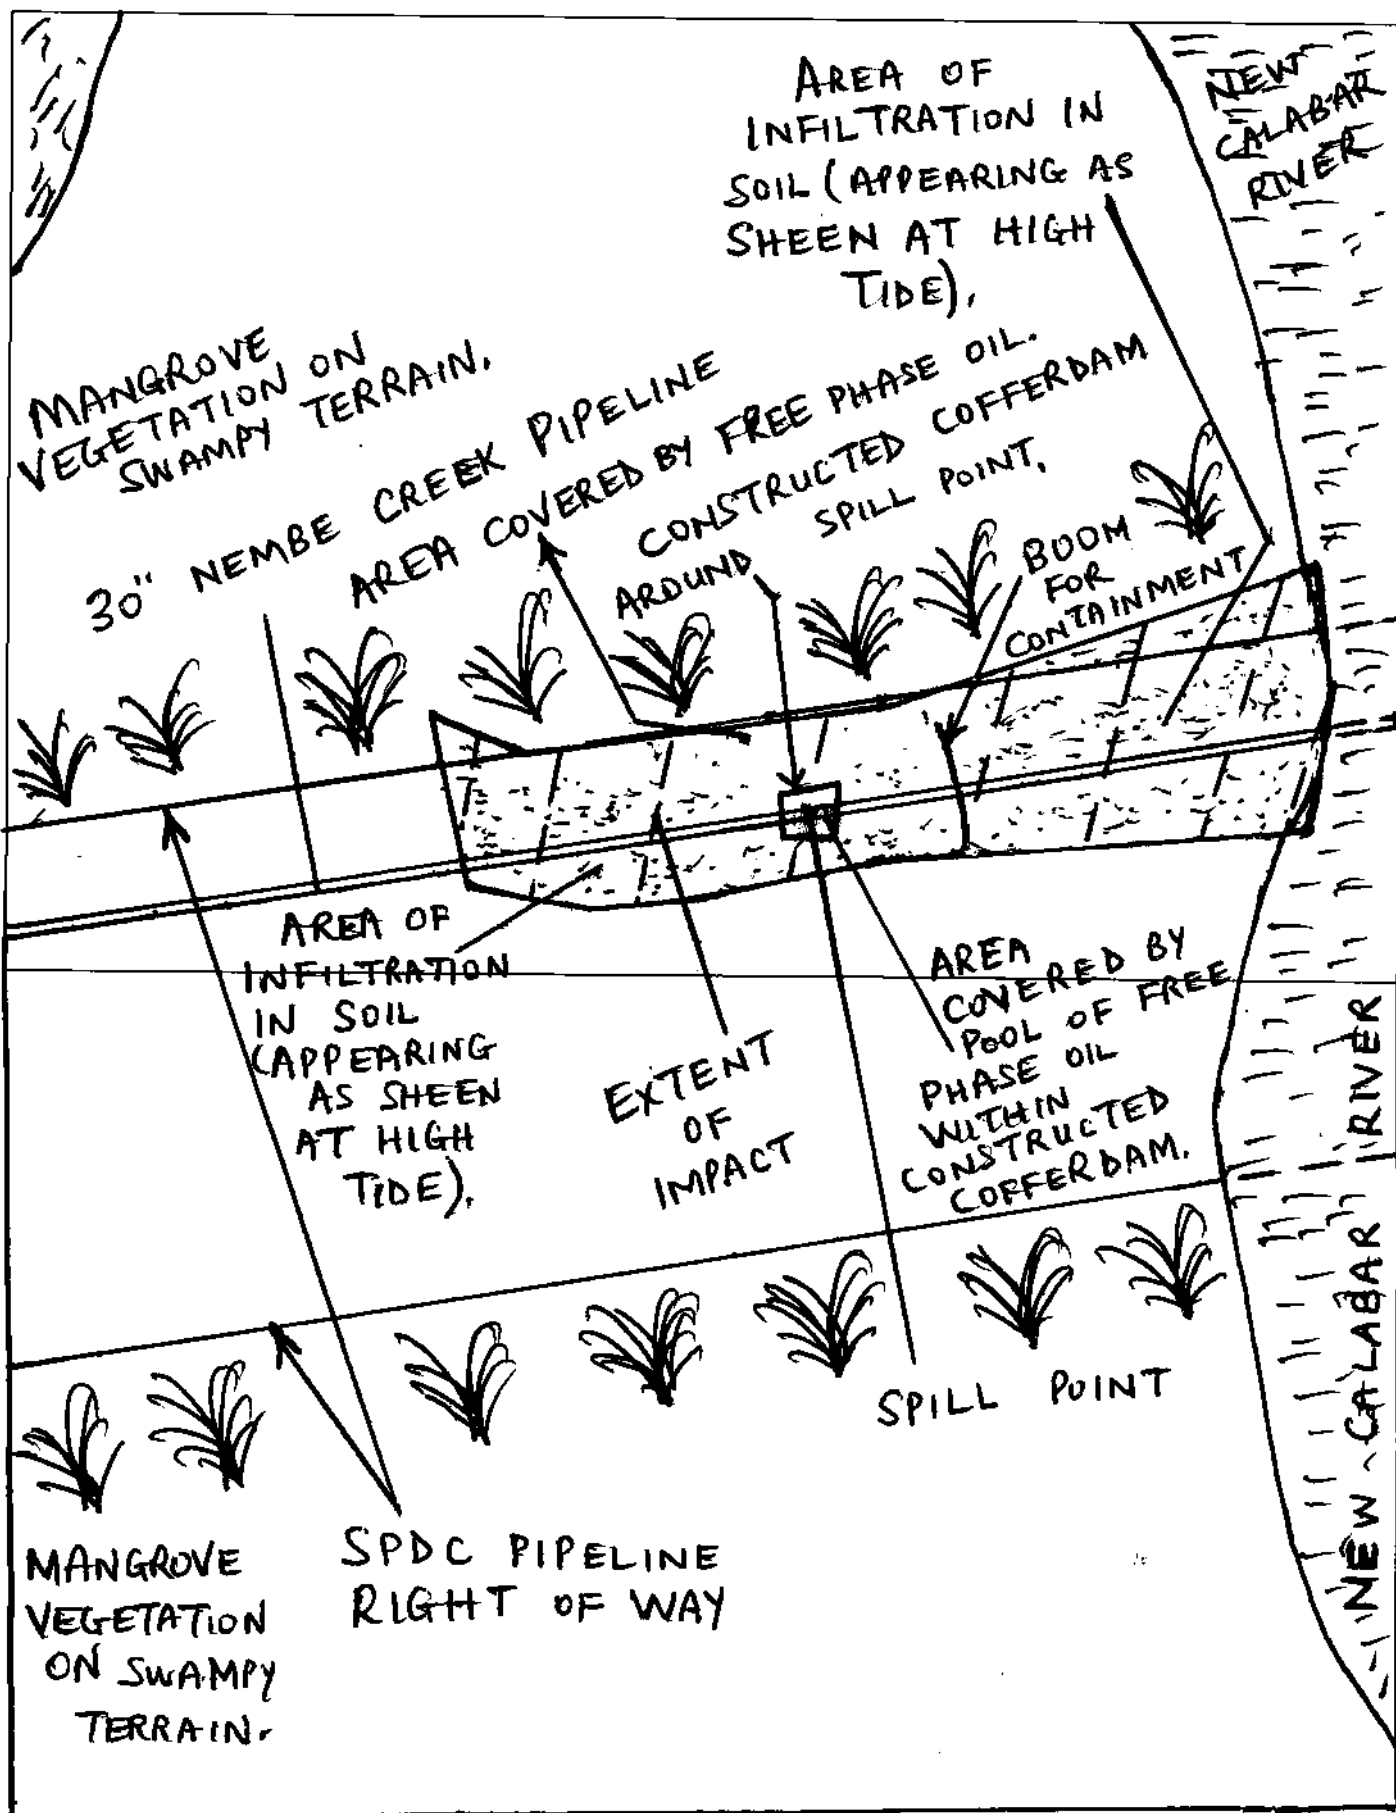 AREA OF
INFILTRATION IN
SOIL (APPEARING AS
SHEEN AT HIGH
TIDE).
NEW
CALABAR
RIVER
MANGROVE
VEGETATION ON
SWAMPY TERRAIN.
30" NEMBE CREEK PIPELINE
AREA COVERED BY FREE PHASE OIL.
CONSTRUCTED COFFERDAM
AROUND SPILL POINT.
BOOM
FOR
CONTAINMENT
AREA OF
INFILTRATION
IN SOIL
(APPEARING
AS SHEEN
AT HIGH
TIDE).
EXTENT
OF
IMPACT
AREA
COVERED BY
POOL OF FREE
PHASE OIL
WITHIN
CONSTRUCTED
COFFERDAM.
SPILL POINT
NEW CALABAR RIVER
SPDC PIPELINE
RIGHT OF WAY
MANGROVE
VEGETATION
ON SWAMPY
TERRAIN.